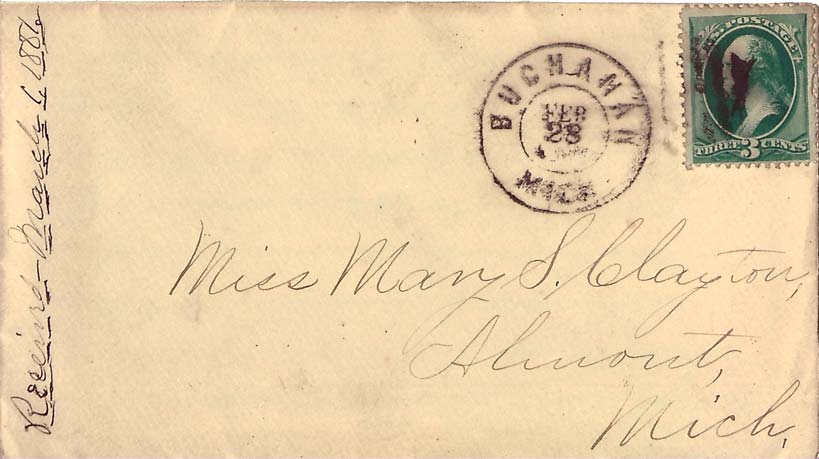 U.S. POSTAGE
THREE 3 CENTS
BUCHANAN
FEB
28
MICH.
Miss Mary S. Clayton,
Almont,
Mich.
Received March 6, 1886